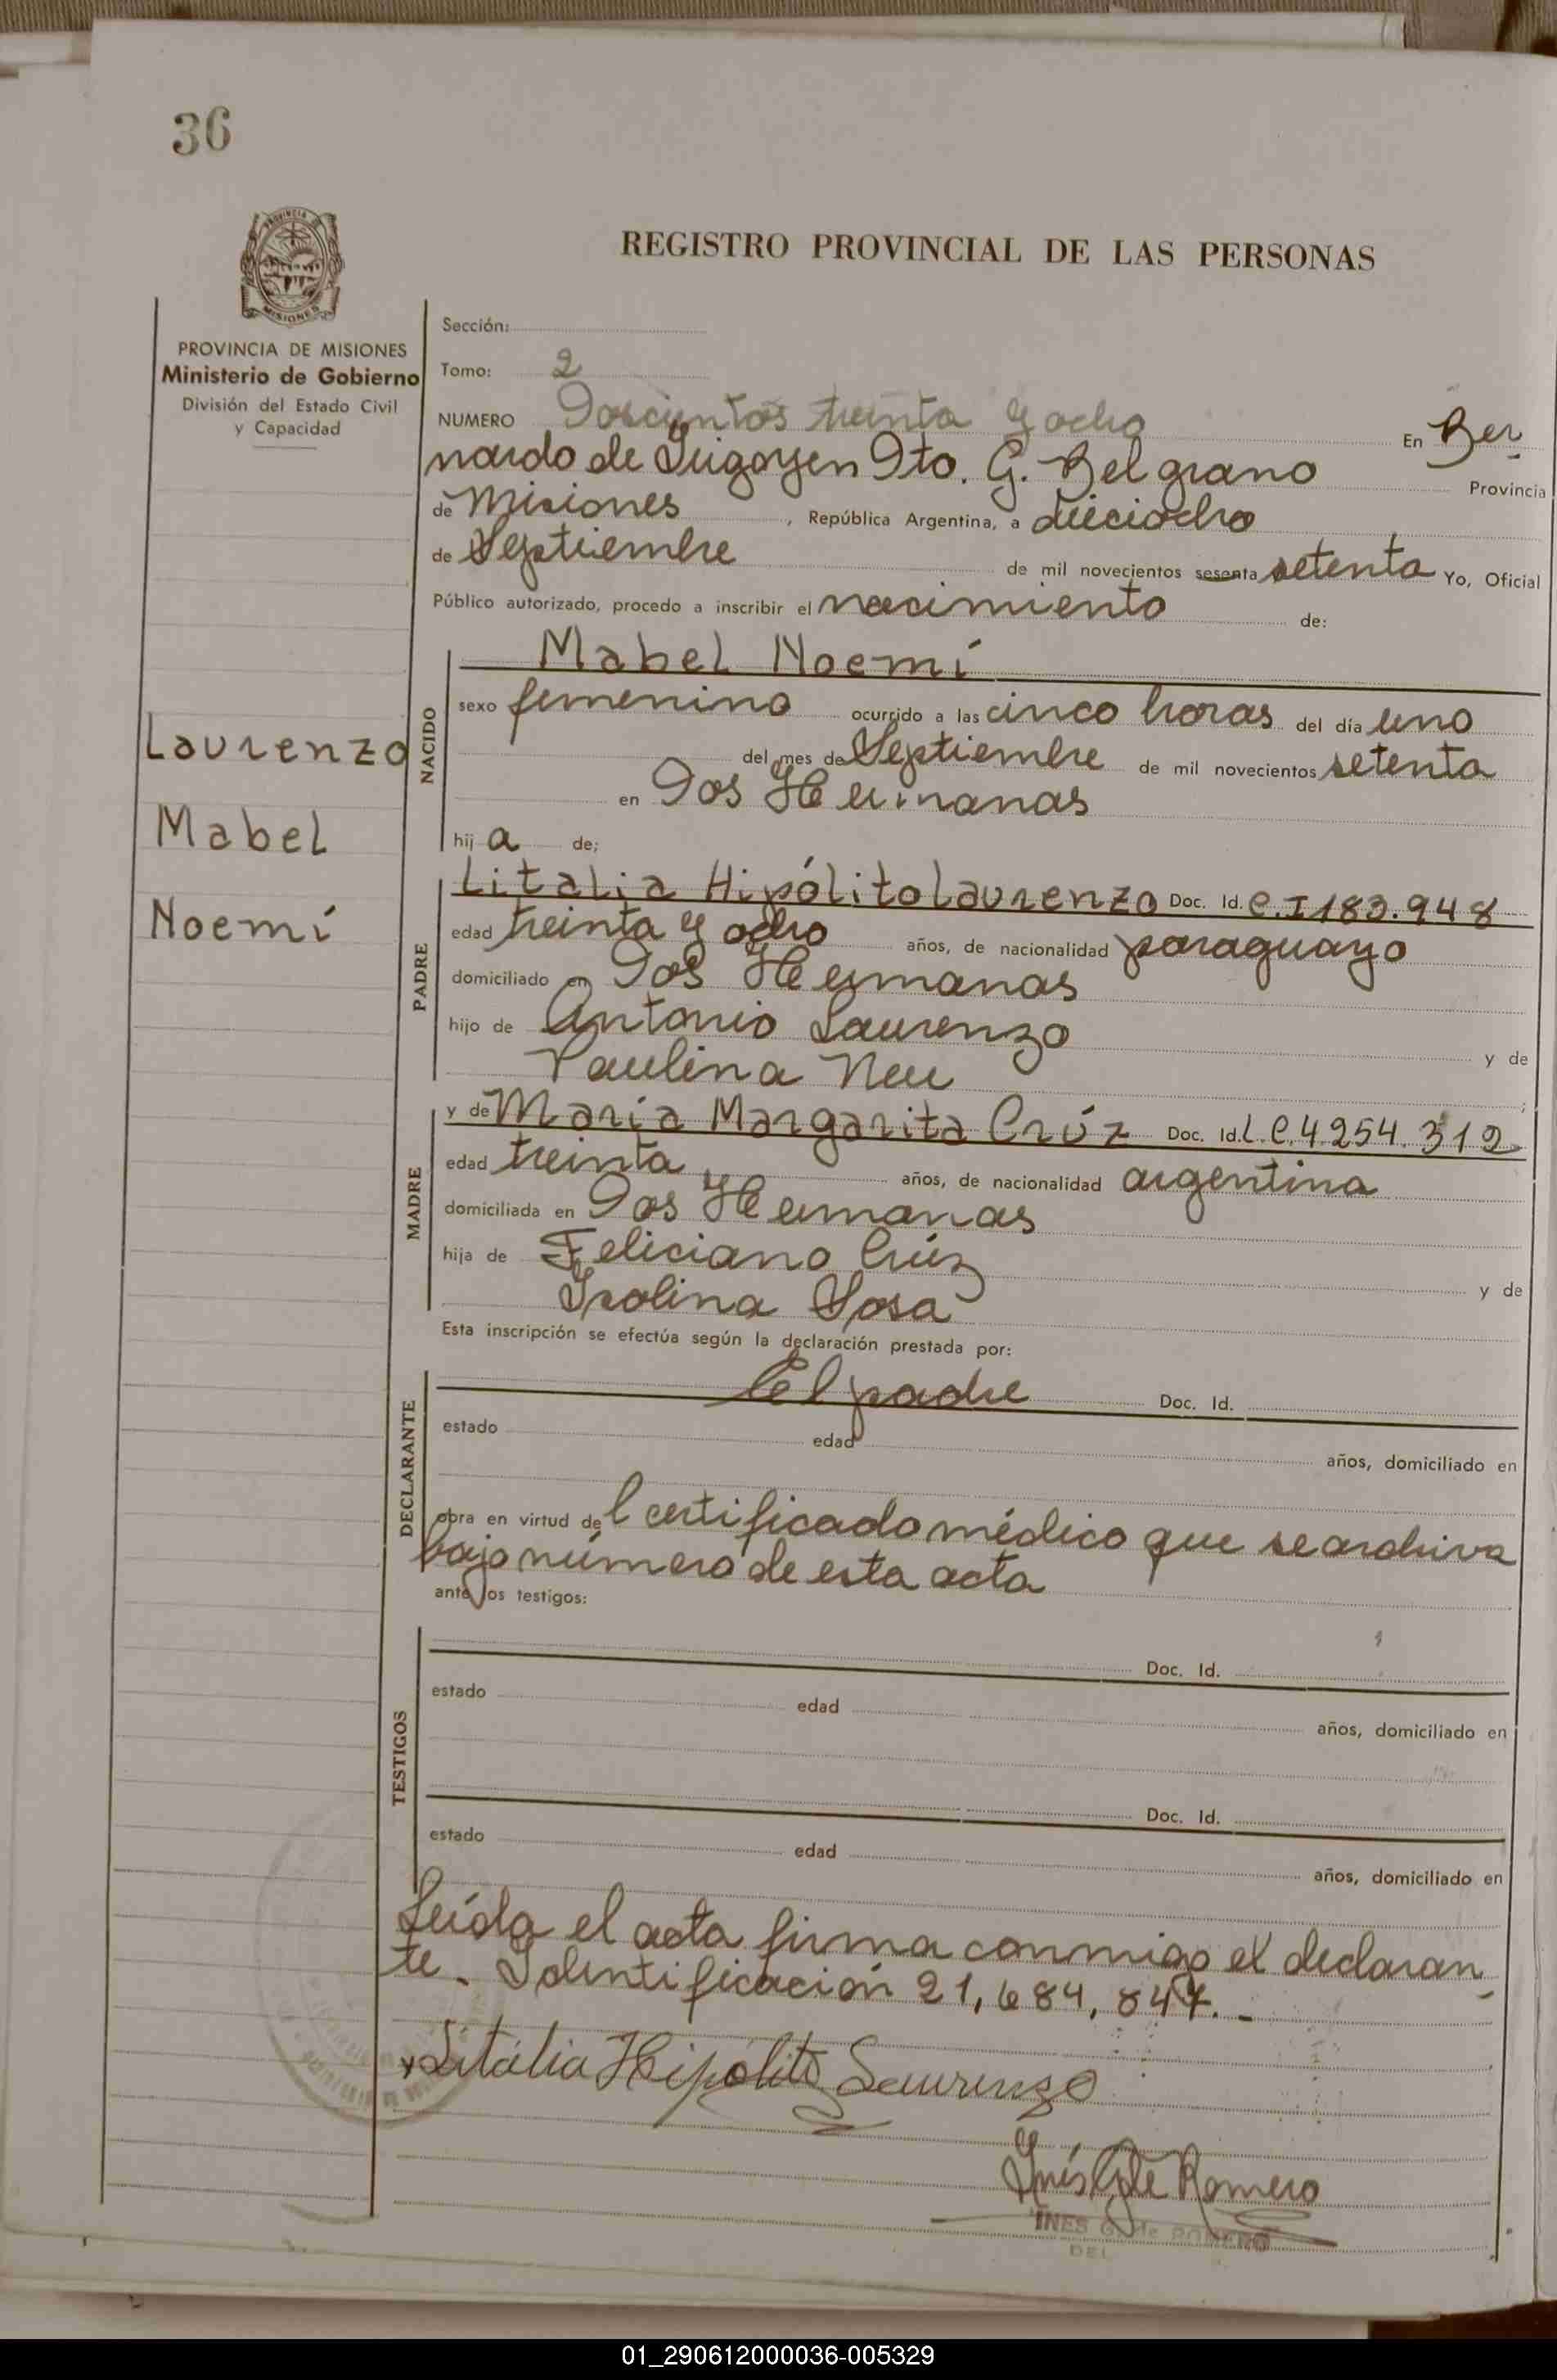 36
PROVINCIA DE
MISIONES
REGISTRO PROVINCIAL DE LAS PERSONAS
PROVINCIA DE MISIONES
Ministerio de Gobierno
División del Estado Civil
y Capacidad
Laurenzo
Mabel
Noemí
Sección:
Tomo: 2
NUMERO Doscientos treinta y ocho En Ber
nardo de Irigoyen Dto. G. Belgrano Provincia
de Misiones, República Argentina, a dieciocho
de Septiembre de mil novecientos sesenta setenta Yo, Oficial
Público autorizado, procedo a inscribir el nacimiento de:
NACIDO
Mabel Noemí
sexo femenino ocurrido a las cinco horas del día uno
del mes de Septiembre de mil novecientos setenta
en Dos Hermanas
hij a de;
PADRE
Litalia Hipólito Laurenzo Doc. Id. C.I 183.948
edad treinta y ocho años, de nacionalidad paraguayo
domiciliado en Dos Hermanas
hijo de Antonio Laurenzo y de
Paulina Neu ;
MADRE
y de María Margarita Crúz Doc. Id. L.C. 4.254.312
edad treinta años, de nacionalidad argentina
domiciliada en Dos Hermanas
hija de Feliciano Crúz y de
Isolina Sosa
Esta inscripción se efectúa según la declaración prestada por:
DECLARANTE
El padre Doc. Id.
estado edad años, domiciliado en
obra en virtud del certificado médico que se archiva
bajo número de esta acta
ante los testigos:
TESTIGOS
Doc. Id.
estado edad años, domiciliado en
Doc. Id.
estado edad años, domiciliado en
Leída el acta firma conmigo el declaran
te. Identificación 21,684,847.-
Litália Hipólito Laurenzo
Inés G de Romero
INES G. de ROMERO
DEL
01_290612000036-005329